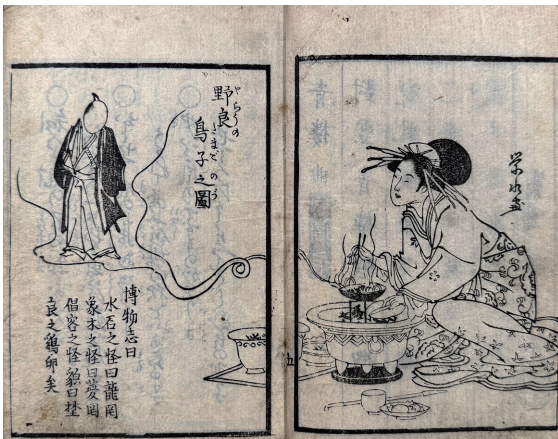 榮水画
野良
鳥子之圖
博物志曰
水石之怪曰龍罔
象木之怪曰夔罔
倡客之怪貌曰埜
良之鶏卵矣